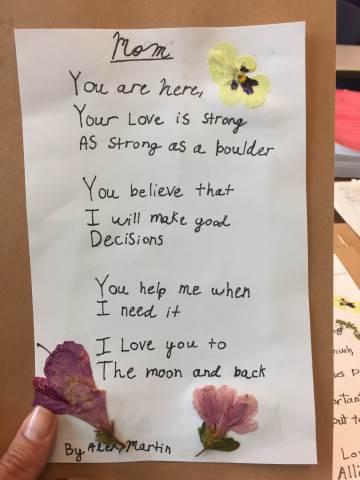 Mom
You are here,
Your Love is strong
AS strong as a boulder
You believe that
I will make good
Decisions
You help me when
I need it
I Love you to
The moon and back
By Alex Martin
much,
Lo
Alli